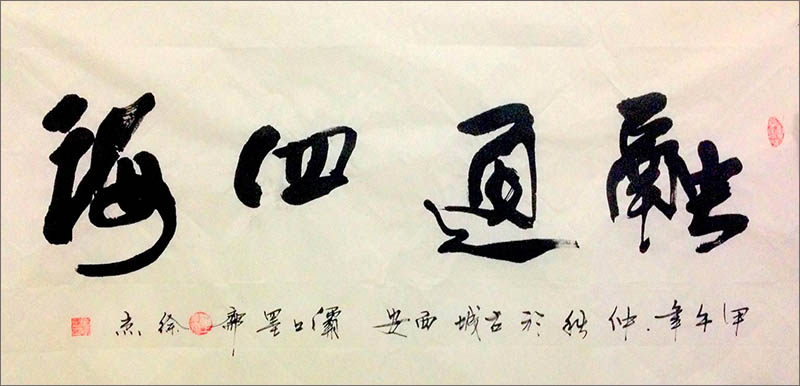 融通四海
甲午年仲秋於古城西安灞口墨齋徐杰